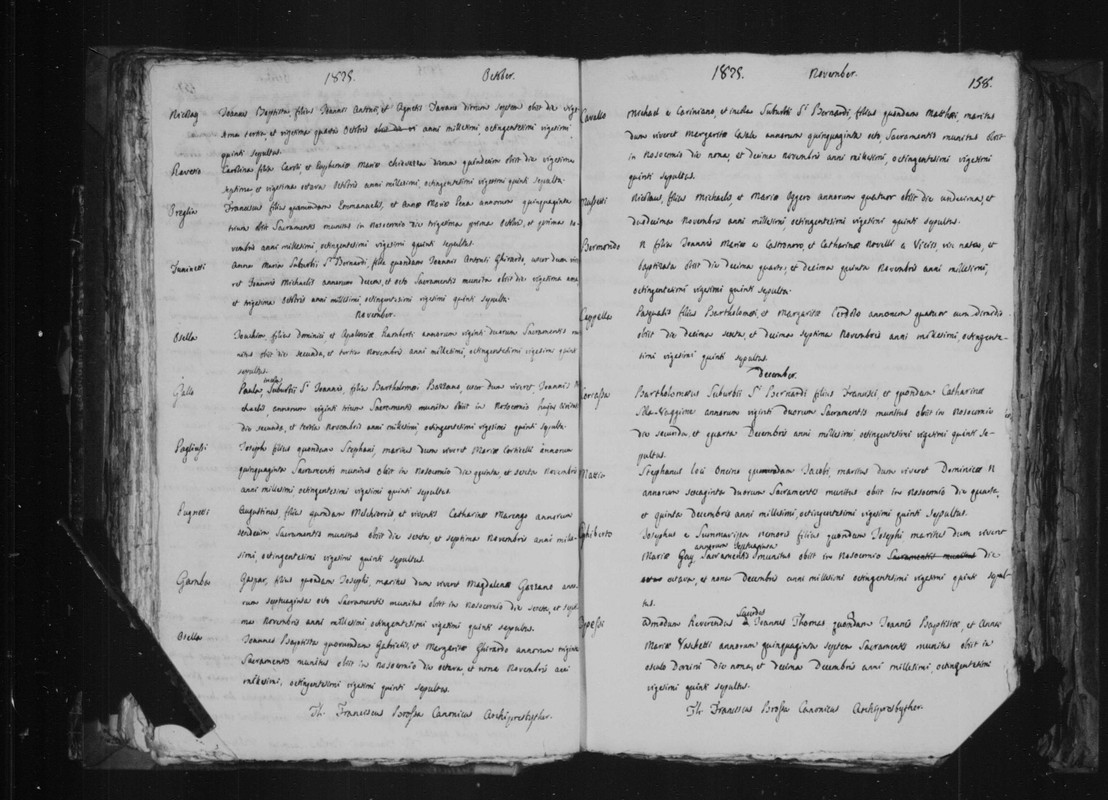 1825. October.
Joannes Baptista, filius Joannis Antonii, et Agnetis dierum septem obiit die vige-
sima tertia et vigesima quarta Octobris anni millesimi, octingentesimi vigesimi
quinti sepultus.
Raverio Carolina filia Caroli, et Euphemiæ Mariæ dierum quindecim obiit die vigesima
septima et vigesima octava Octobris anni millesimi, octingentesimi vigesimi quinti sepulta.
Preglia Franciscus filius quondam Emmanuelis, et Annæ Mariæ Pera annorum quinquaginta
trium obiit Sacramentis munitus in Nosocomio die trigesima prima Octobris, et prima No-
vembris anni millesimi, octingentesimi vigesimi quinti sepultus.
Anna Maria Suburbii Sti Bernardi, filia quondam Joannis Antonii Ghirardo, uxor dum vive-
ret Joannis Michaelis annorum decem, et octo Sacramentis munita obiit die vigesima nona
et trigesima Octobris anni millesimi, octingentesimi vigesimi quinti sepulta.
November.
Osella Joachim, filius Dominici et Apoloniæ annorum viginti duorum Sacramentis mu-
nitus obiit die secunda, et tertia Novembris anni millesimi, octingentesimi vigesimi quinti
sepultus.
Gallo Paula, incola Suburbii Sti Joannis, filia Bartholomæi Bazzano, uxor dum viveret Joannis Mi-
chaelis, annorum viginti trium Sacramentis munita obiit in Nosocomio hujus civitatis
die secunda, et tertia Novembris anni millesimi, octingentesimi vigesimi quinti sepulta.
Pagliassi Joseph filius quondam Stephani, maritus dum viveret Mariæ annorum
quinquaginta Sacramentis munitus obiit in Nosocomio die quinta, et sexta Novembris
anni millesimi octingentesimi vigesimi quinti sepultus.
Pugnetti Augustinus filius quondam Melchiorris, et viventis Catharinæ Marengo annorum
sexdecim Sacramentis munitus obiit die sexta, et septima Novembris anni mille-
simi, octingentesimi vigesimi quinti sepultus.
Gambas Gaspar, filius quondam Josephi, maritus dum viveret Magdalenæ Gazzano anno-
rum septuaginta octo Sacramentis munitus obiit in Nosocomio die sexta, et septi-
ma Novembris anni millesimi octingentesimi vigesimi quinti sepultus.
Osella Joannes Baptista quondam Gabrielis, et Margaritæ Ghirardo annorum viginti
Sacramentis munitus obiit in Nosocomio die octava, et nona Novembris anni
millesimi, octingentesimi vigesimi quinti sepultus.
Th. Franciscus Brossa Canonicus Archipresbyter.
1825. November. 158.
Cavallo Michael e Cariniano, et incola Suburbii Sti Bernardi, filius quondam Matthæi, maritus
dum viveret Margaritæ Casale annorum quinquaginta octo, Sacramentis munitus obiit
in Nosocomio die nona, et decima Novembris anni millesimi, octingentesimi vigesimi
quinti sepultus.
Mussetti Nicolaus, filius Michaelis, et Mariæ Oggero annorum quatuor obiit die undecima, et
duodecima Novembris anni millesimi, octingentesimi vigesimi quinti sepultus.
Bermondo N filia Joannis Mariæ e Castronovo, et Catharinæ Novelli e Viciis, vix natus, et
baptizata obiit die decima quarta, et decima quinta Novembris anni millesimi,
octingentesimi vigesimi quinti sepulta.
Cappella Pasqualis filius Bartholomæi, et Margaritæ annorum quatuor cum dimidio
obiit die decima sexta, et decima septima Novembris anni millesimi, octingente-
simi vigesimi quinti sepultus.
December.
Bartholomæus Suburbii Sti Bernardi filius Francisci, et quondam Catharinæ
annorum viginti duorum Sacramentis munitus obiit in Nosocomio
die secunda, et quarta Decembris anni millesimi octingentesimi vigesimi quinti se-
pultus.
Stephanus loci Oncino quondam Jacobi, maritus dum viveret Dominicæ N
annorum sexaginta duorum Sacramentis munitus obiit in Nosocomio die quarta,
et quinta Decembris anni millesimi, octingentesimi vigesimi quinti sepultus.
Ghiberto Josephus e Summaripa nemoris filius quondam Josephi maritus dum viveret
Mariæ Gay annorum septuaginta Sacramentis munitus obiit in Nosocomio Sacramentis munitus die
octava, et nona Decembris anni millesimi octingentesimi vigesimi quinti sepul-
tus.
admodum Reverendus Sacerdos D. Joannes Thomas quondam Joannis Baptistæ, et Annæ
Mariæ Vaschetti annorum quinquaginta septem Sacramentis munitus obiit in
osculo Domini die nona, et decima Decembris anni millesimi, octingentesimi
vigesimi quinti sepultus.
Th. Franciscus Brossa Canonicus Archipresbyther.